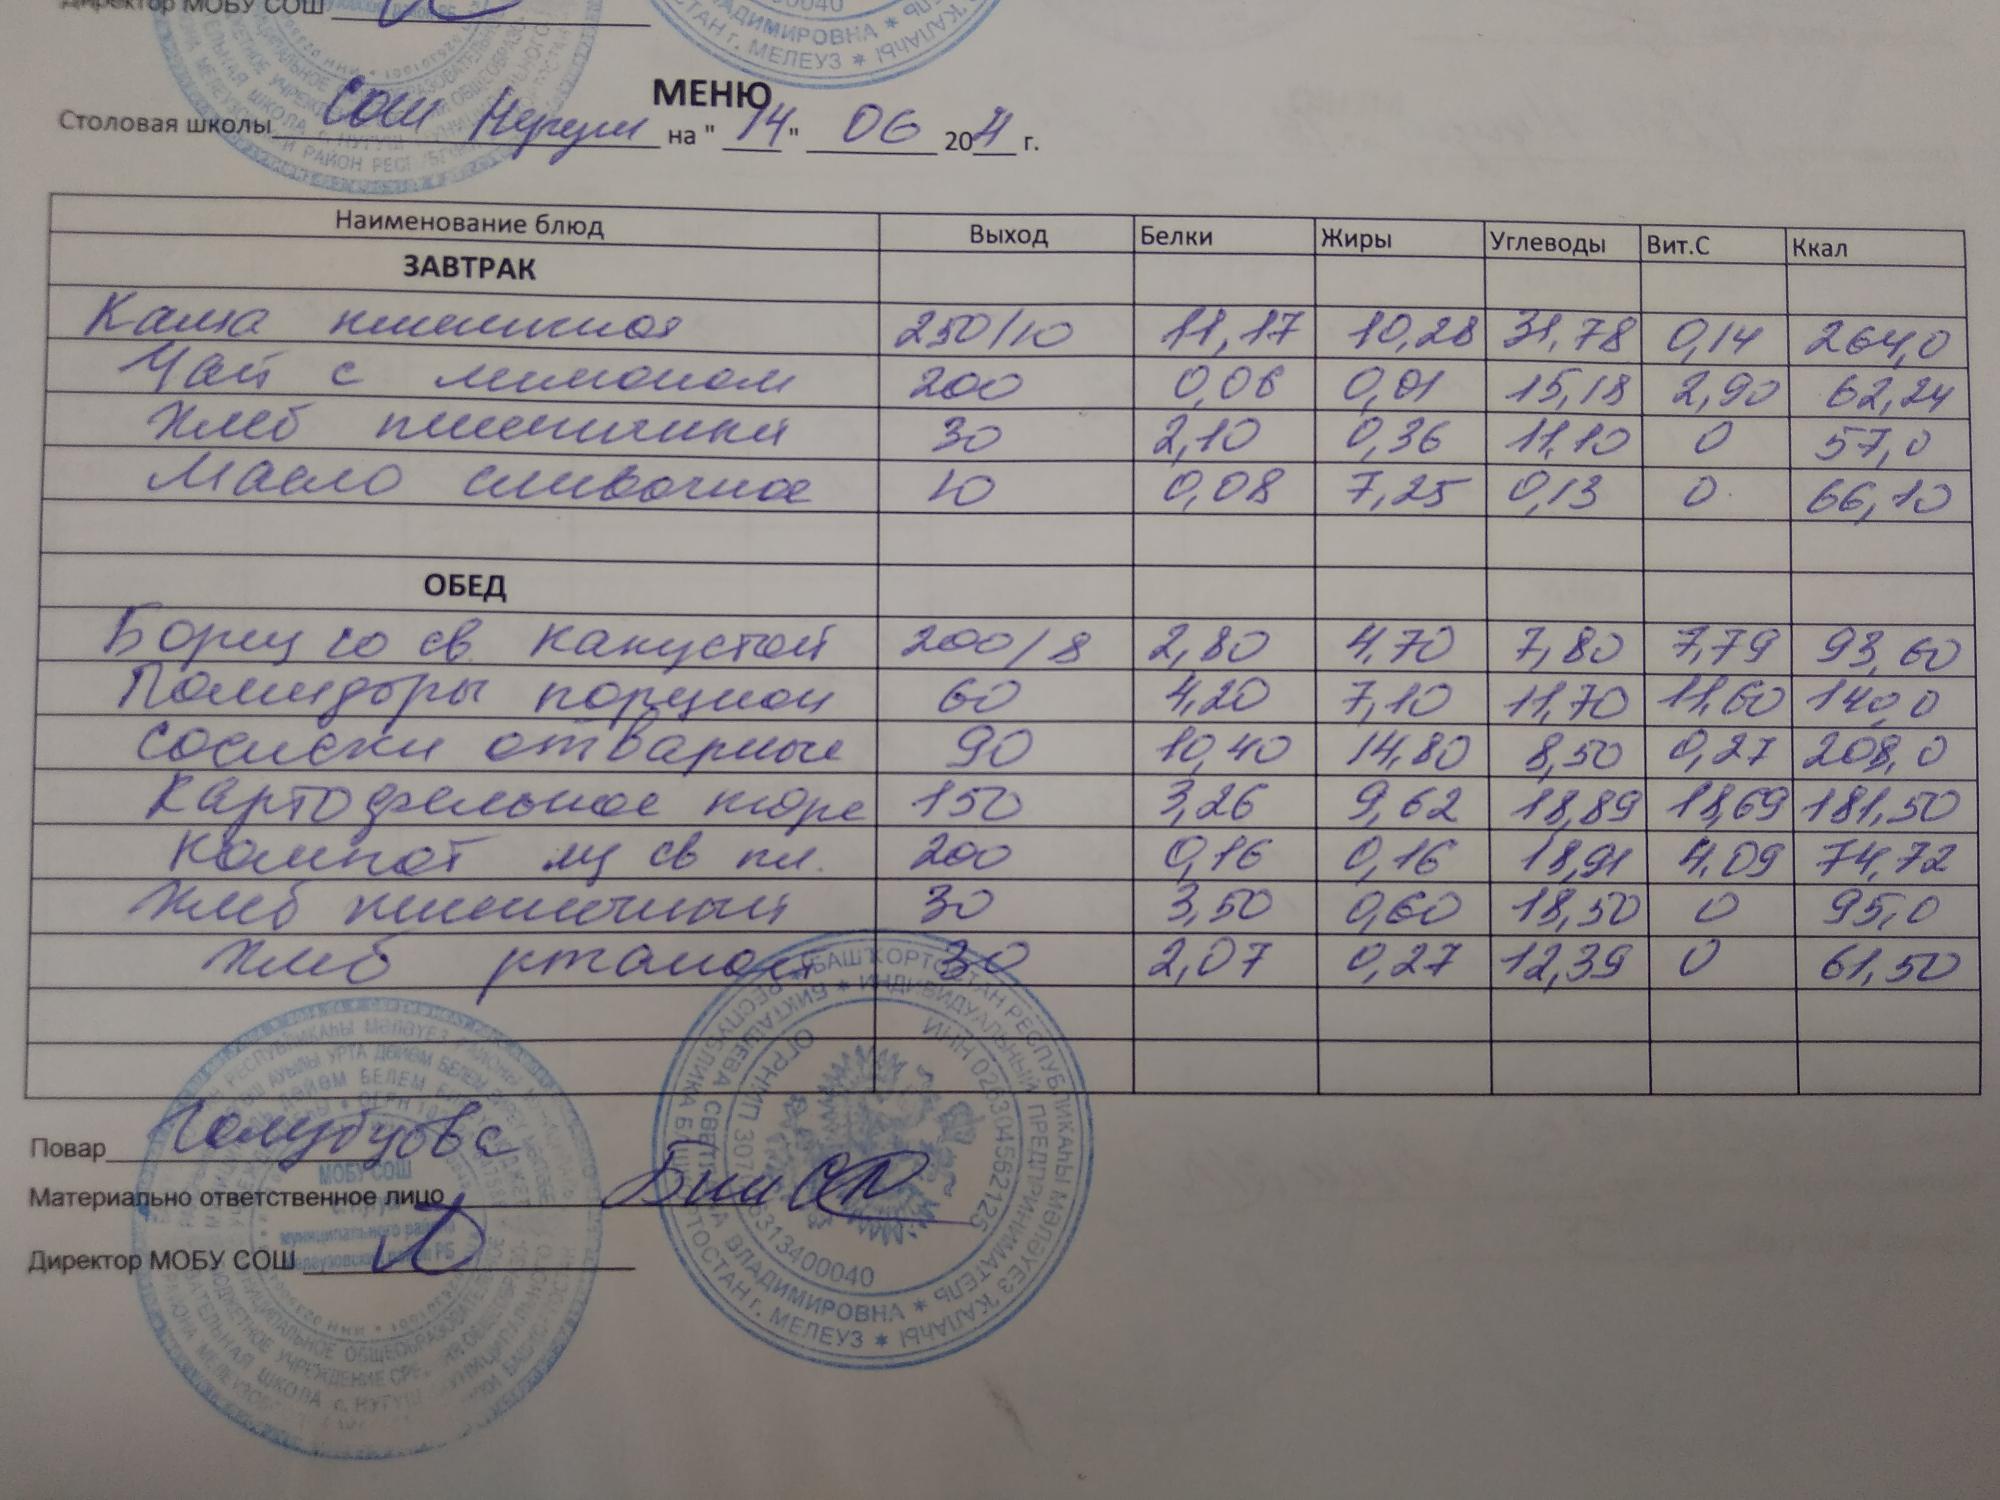 Директор МОБУ СОШ
МЕНЮ
Столовая школы СОШ Нугуш на "14" 06 2021 г.
Наименование блюд Выход Белки Жиры Углеводы Вит.С Ккал
ЗАВТРАК
Каша пшеничная 250/10 11,17 10,28 31,78 0,14 264,0
Чай с лимоном 200 0,06 0,01 15,18 2,90 62,24
Хлеб пшеничный 30 2,10 0,36 11,10 0 57,0
Масло сливочное 10 0,08 7,25 0,13 0 66,10
ОБЕД
Борщ со св капустой 200/8 2,80 4,70 7,80 7,79 93,60
Помидоры порцион 60 4,20 7,10 11,70 11,60 140,0
Сосиски отварные 90 10,40 14,80 8,50 0,27 208,0
Картофельное пюре 150 3,26 9,62 18,89 18,69 181,50
Компот из св пл. 200 0,16 0,16 18,91 4,09 74,72
Хлеб пшеничный 30 3,50 0,60 18,50 0 95,0
Хлеб ржаной 30 2,07 0,27 12,39 0 61,50
Повар Голубцова
Материально ответственное лицо
Директор МОБУ СОШ
БАШҠОРТОСТАН РЕСПУБЛИКАҺЫ МӘЛӘҮЕЗ ҠАЛАҺЫ
РЕСПУБЛИКА БАШКОРТОСТАН г. МЕЛЕУЗ
ИНДИВИДУАЛЬНЫЙ ПРЕДПРИНИМАТЕЛЬ
БИКТАШЕВА СВЕТЛАНА ВЛАДИМИРОВНА
ИНН 026304562125
МОБУ СОШ
муниципального района